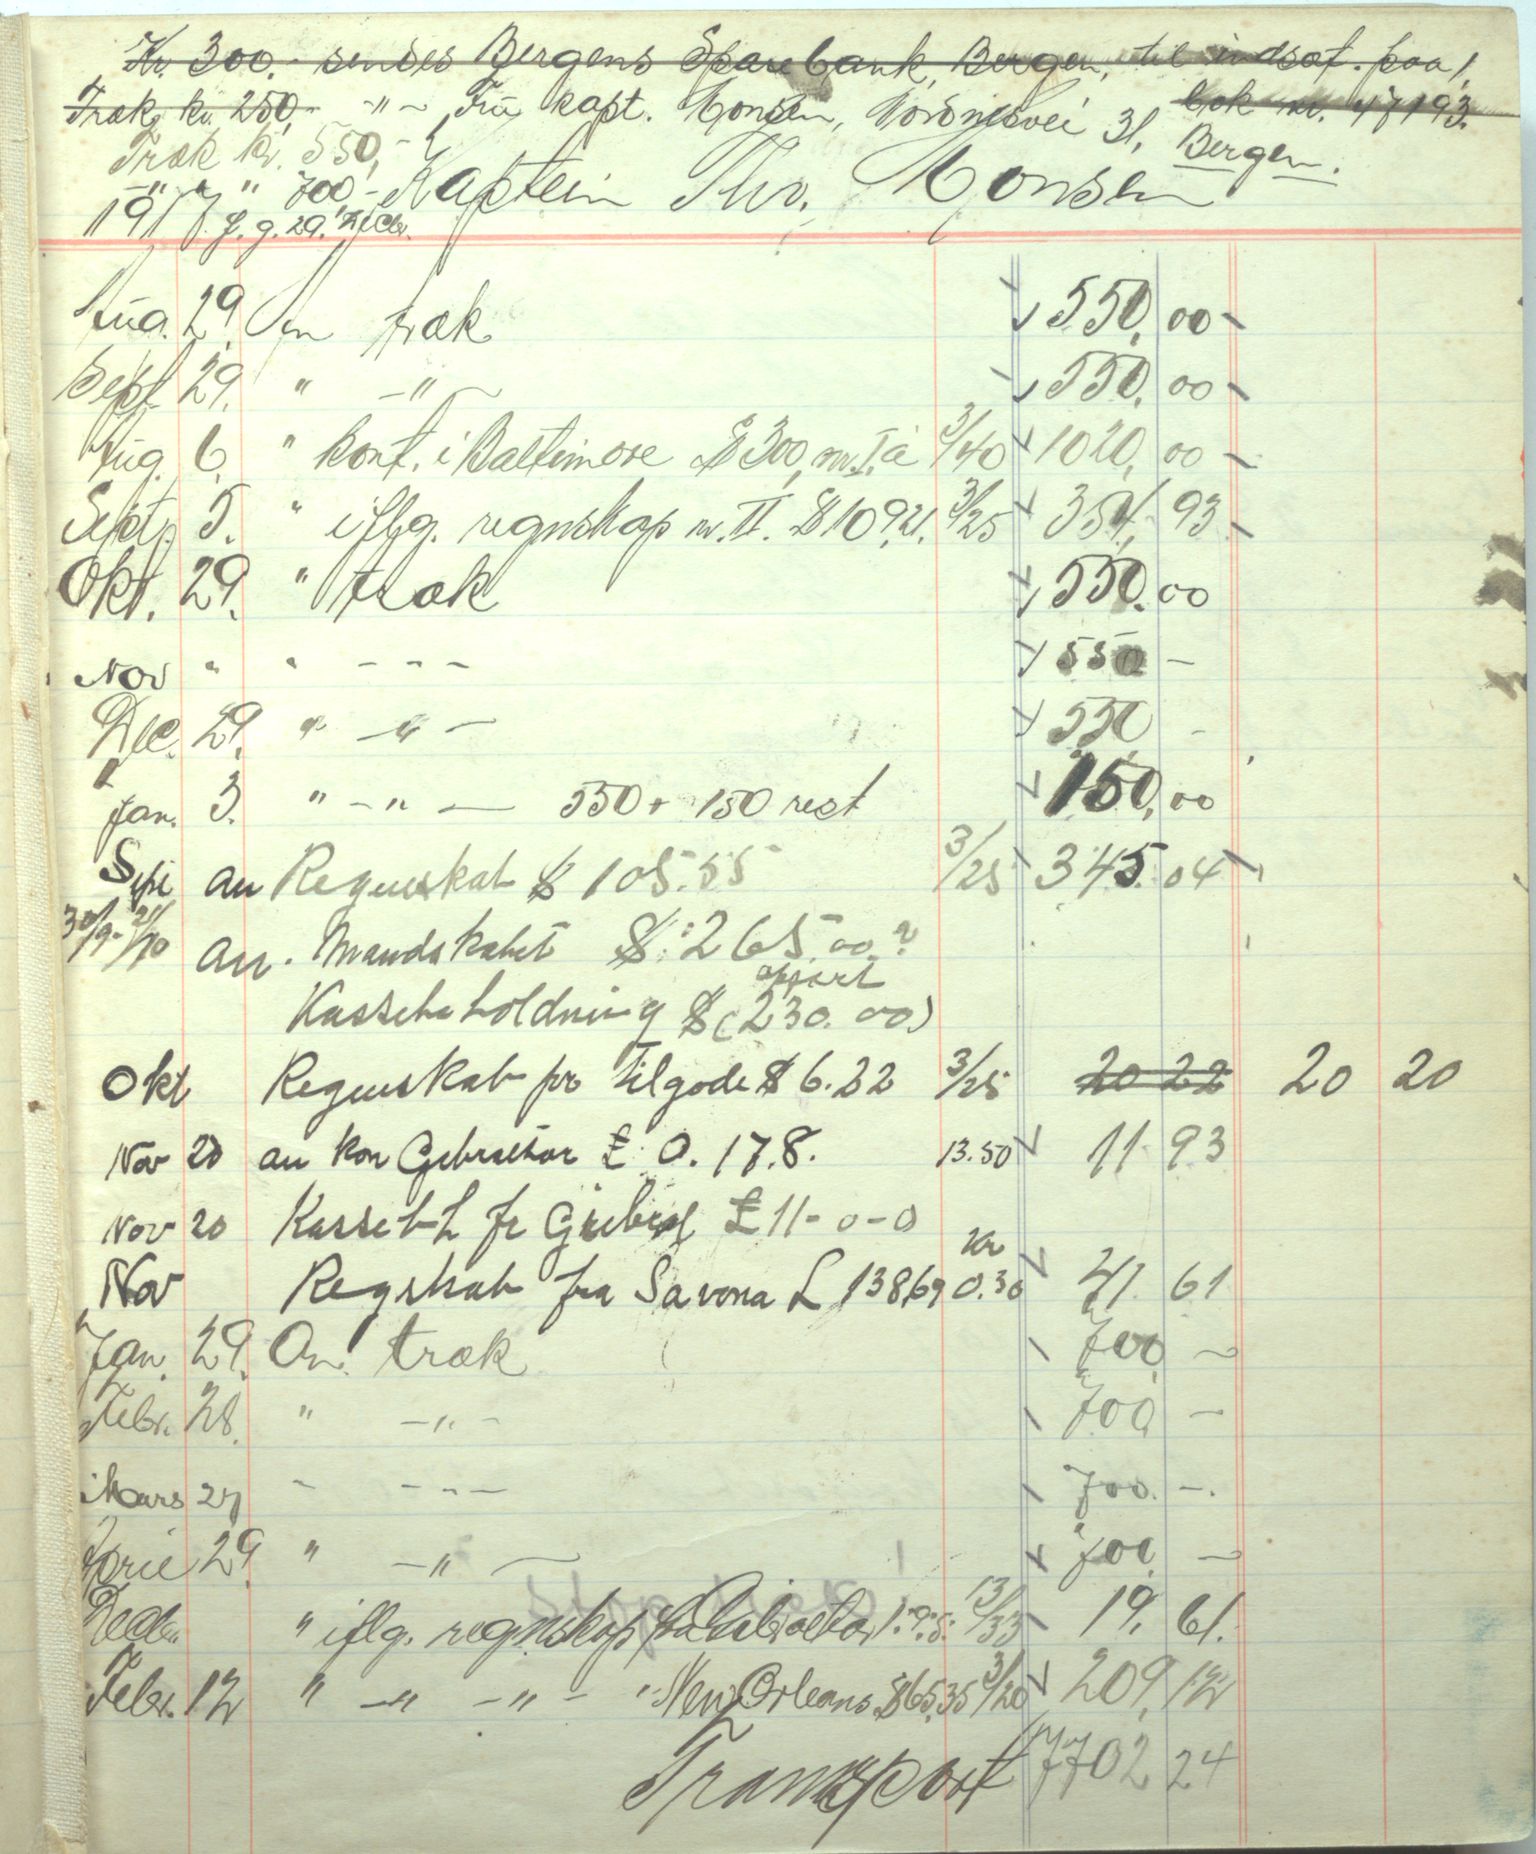 Kr. 300.- sendes Bergens Sparebank, Bergen, til indsat. paa
bok nr. 47193.
Træk kr. 250,- -"- Fru kapt. Monsen, Nordnesvei 31, Bergen.
Træk kr. 550,-
-"- " " 700 - Kaptein Thv. Monsen
1917 f. g. 29. Decbr.
Aug. 29. An træk 550,00
Sept 29. " -"- 550,00
Aug. 6. " kont. i Baltimore $300, nr. I. à 3/40 1020,00
Sept. 5. " iflg. regnskap nr. II. $109,21. 3/25 354,93
Okt. 29. " træk 550.00
Nov " " - - - 550 -
Dec. 29. " -"- 550 -
Jan. 3. " -"- 550 + 150 rest 150,00
Sept an Regnskab $ 105.55 3/25 345.04
30/9-21/10 an. Mandskabet $ 265.00?
Kassebeholdning $ (230.00)
opført
Okt Regnskab pr tilgode $ 6.22 3/25 20 22 20 20
Nov 20 an kon Gibraltar £ 0.17.8. 13.50 11.93
Nov 20 Kassebh fr Gibral £ 11-0-0
Nov Regskab fra Savona L 138,69 Kr 0.30 41 61
Jan. 29. An træk 700 -
Febr. 28. " -"- 700 -
Mars 27 - - - - 700. -.
April 29. " -"- 700 -
Decbr. " iflg. regnskap fra Gibraltar 1.9.5. 13/33 19. 61.
Febr. 12 " -"- -"- " New Orleans $65,35 3/20 209,12
Transport 7702 24